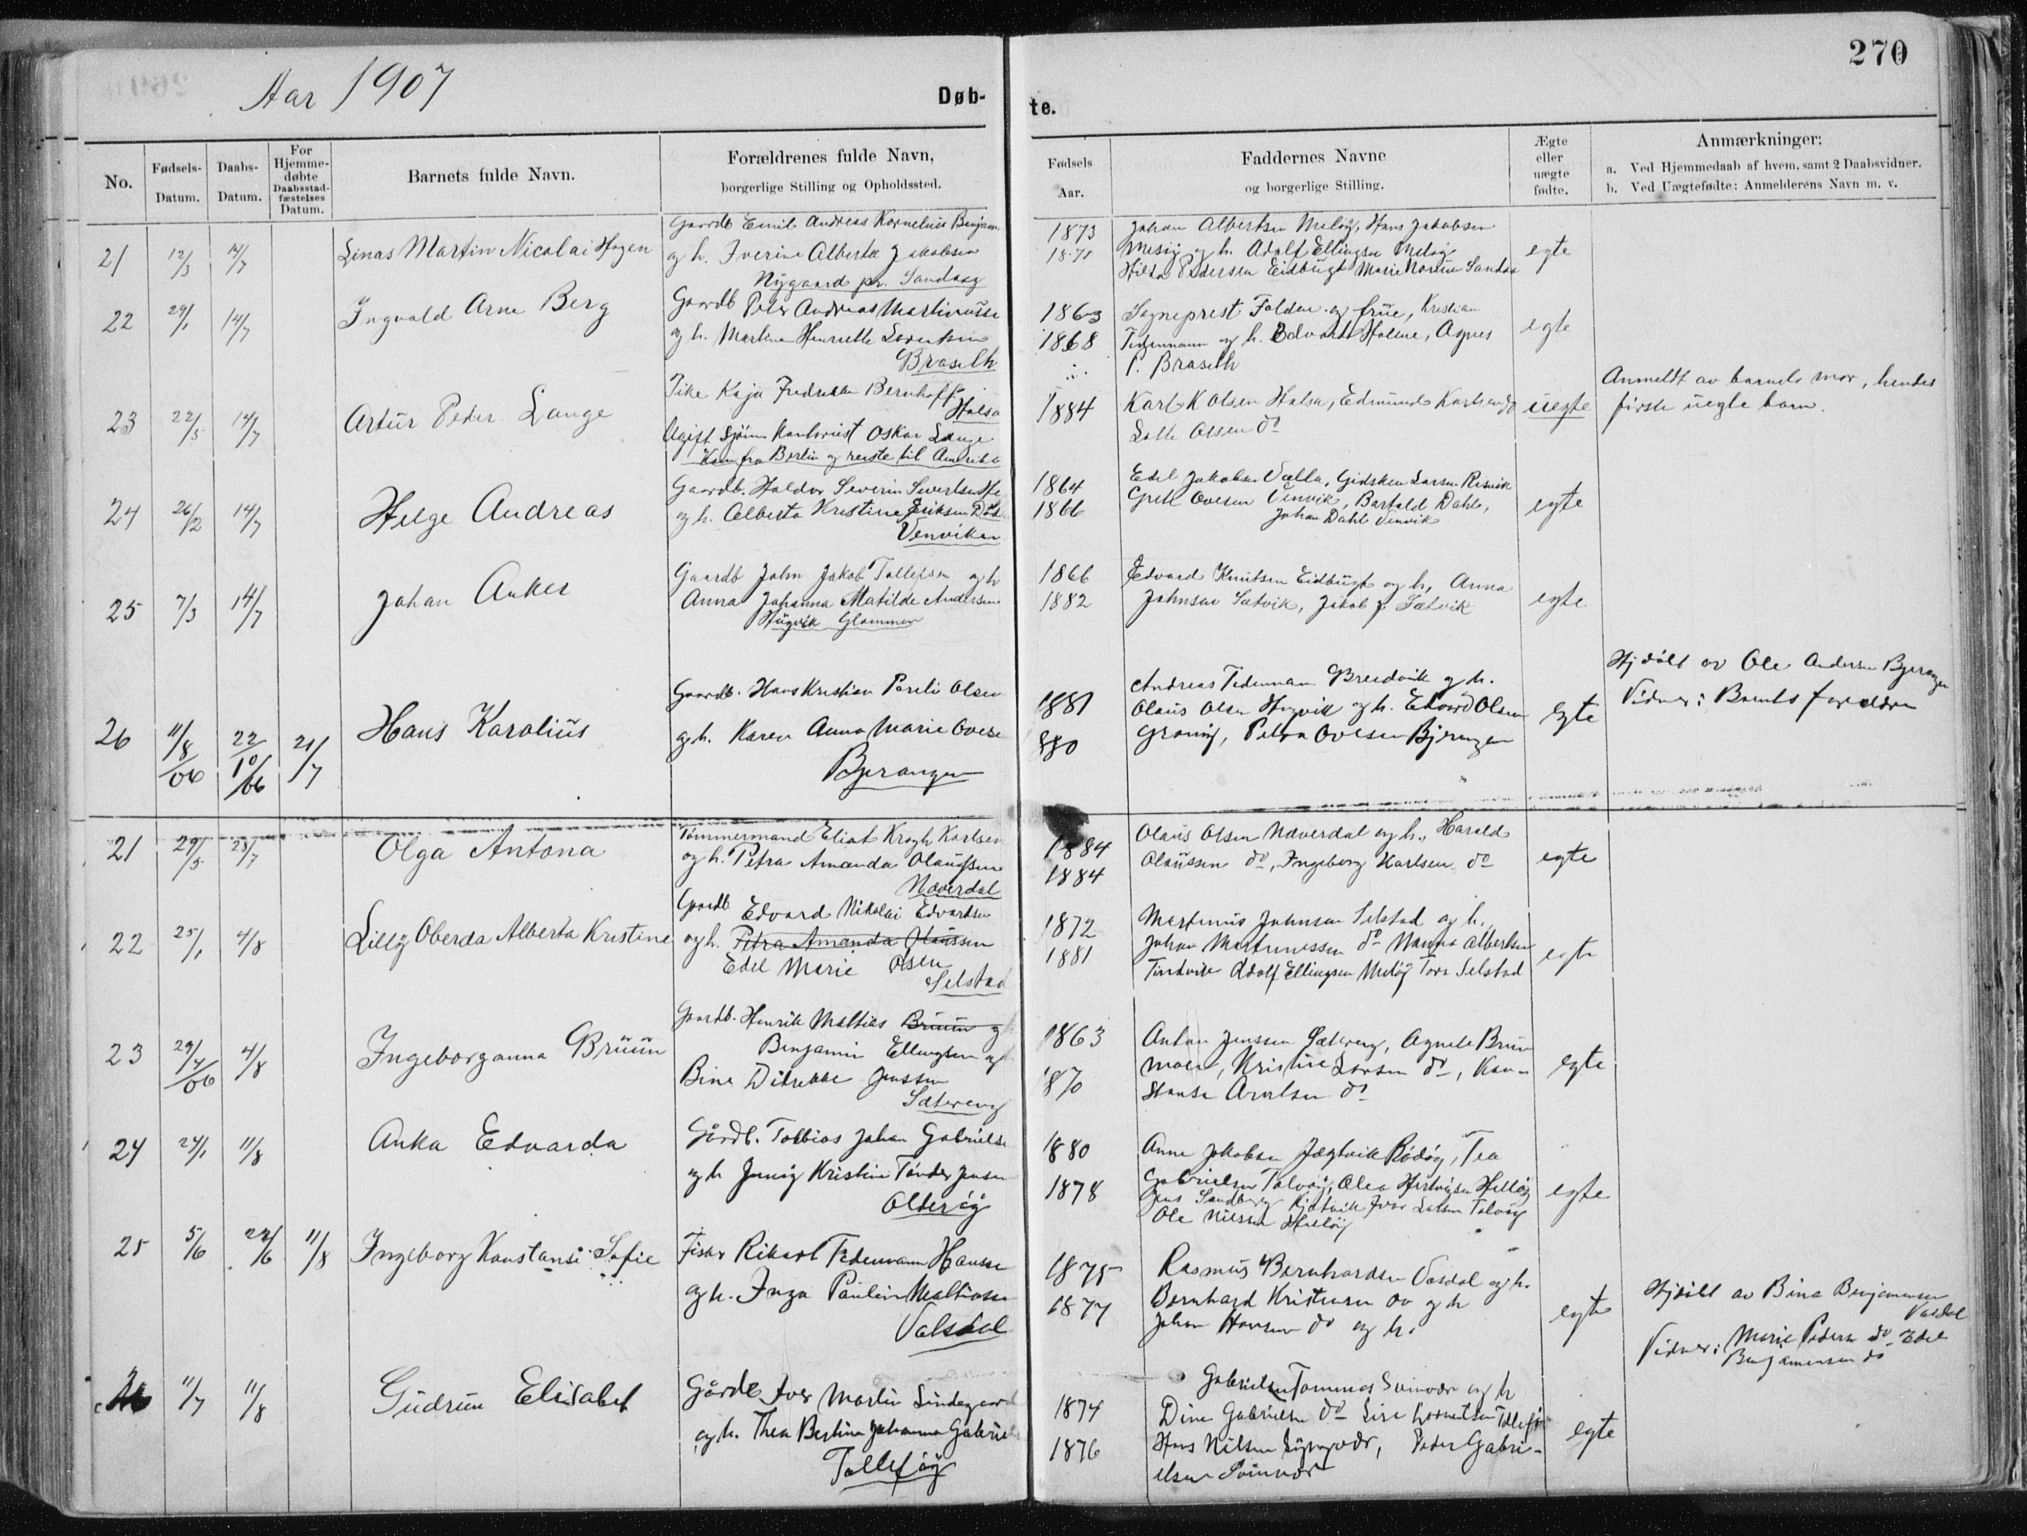 Aar 1907
Døb-
te.
270
No.
Fødsels-
Datum.
Daabs-
Datum.
For
Hjemme-
døbte
Daabsstad-
fæstelses
Datum.
Barnets fulde Navn.
Forældrenes fulde Navn,
borgerlige Stilling og Opholdssted.
Fødsels
Aar.
Faddernes Navne
og borgerlige Stilling.
Ægte
eller
uægte
fødte.
Anmærkninger:
a. Ved Hjemmedaab af hvem, samt 2 Daabsvidner.
b. Ved Uægtefødte: Anmelderens Navn m. v.
21 12/3 14/7 Linas Martin Nicolai Hagen
Gaardb Emil Andreas Kornelius
og h. Iverine Alberta Jakobsen
Nygaard pr. Sandaag
1873 Johan Albertsen Meløy, Hans Jakobsen
Mesøy og h. Adolf Ellingsen Meløy
Hilda Pedersen Eidbugt Marie
egte
22 29/1 14/7 Ingvald Arne Berg
Gaardb Peter Andreas Martinusse
og h. Martina Henriette Lorentsen
Braseth
1863 Sogneprest Falden og frue, Kristian
1868 Tidemann og h. Edvard Holene, Agnes
P. Braseth
egte
23 22/5 14/7 Artur Peder Lange
Pike Kaja Fredrikke Bernhoff
Halsa
Ugift Oskar Lange
Kom fra Berlin og reiste til Amerika
1884 Karl K Olsen Halsa, Edmund Karlsen do
Lotte Olsen do
uegte
Anmeldt av barnets mor, hendes
første uegte barn.
24 26/2 14/7 Helge Andreas
Gaardb. Haldor Severin
og h. Alberta Kristine Eriksen
Venviken
1864 Edel Jakobsen Valla, Gidsken Larsen
1866 Grete Ovesen Venvik, Bartold Dahl,
Johan Dahl Venvik
egte
25 7/3 14/7 Johan Anker
Gaardb John Jakob Tollefsen og h
Anna Johanna Matilde Andersen
Glommen
1866 Edvard Knutsen Eidbugt og h, Anna
1882 Johnsen Sætvik, Jakob J. Sætvik
egte
26 11/8/06 22/10/06 21/7 Hans Karolius
Gaardb. Hans Kristian Pareli Olsen
og h. Karen Anna Marie Ovese
Bjerangen
1881 Andreas Tidemann Breidvik og h.
Olaus Olsen og h. Edvard Olsen
880 Grønøy, Petra Ovesen Bjerangen
egte
Hjdøbt av Ole Andersen Bjerangen
Vidner: Barnets forældre
21 29/5 28/7 Olga Antona
Tømmermand Eliot Krogh Karlsen
og h. Petra Amanda Olaussen
Næverdal
1884 Olaus Olsen Næverdal og h., Harald
1884 Olaussen do, Ingeborg Karlsen do
egte
22 25/1 4/8 Lilly Oberda Alberta Kristine
Gaardb Edvard Nikolai Edvardsen
og h. Petra Amanda Olaussen
Edel Marie Olsen
Selstad
1872 Martinus Johnsen Selstad og h.
1881 Johan Martinussen do Nanna Albertsen
Adolf Ellingsen Meløy Tora Selstad
egte
23 29/4/06 4/8 Ingeborganna Bruun
Gaardb. Henrik Mathias Bruun og h
Benjamin Ellingsen og h
Bine Ditrikke Jenssen
Sætereng
1863 Anton Jenssen Sætereng, Agnete Bruun
1870 Moen, Kristine Larsen do, Kon-
stanse Arntsen do
egte
24 24/1 11/8 Anka Edvarda
Gårdb. Tobias Johan Gabrielse
og h Jenny Kristine Tønder Jensen
Olterøy
1880 Anne Jakobsen Jægtvik Rødøy, Tea
1878 Gabrielsen
Jens Sandberg
Ole Nilssen
egte
25 5/6 22/6 11/8 Ingeborg Konstansi Sofie
Fisker Rikart Tidemann Hansse
og h. Inga Pauline Mathiasse
Valsdal
1875 Rasmus Bernhardsen Vasdal og h.
1877 Bernhard Kristensen do og h
Johan Hansen do og h.
egte
Hjdøbt av Bina Benjaminsen
Vasdal
Vidner: Marie Pedersen do Edel
Benjaminsen do
26 11/7 11/8 Gudrun Elisabet
Gårdb Iver Martin Lindegaard
og h. Thea Bertina Johanna Gabriels
Tolleføy
1874 Gabrielsen Tommas Svinvær og h
Dina Gabrielsen do Lise Tolleføy
1876 Hans Nilsen Lyngvær, Peder Gabri-
elsen Svinvær
egte